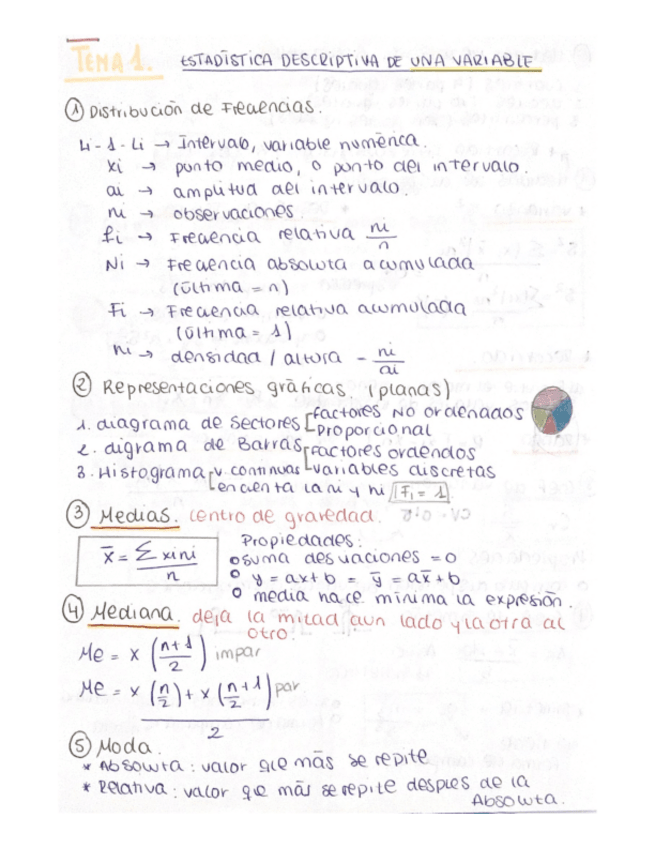 TEMA 1. ESTADÍSTICA DESCRIPTIVA DE UNA VARIABLE
① Distribución de Frecuencias.
Li-1-Li → Intervalo, variable numérica.
xi → punto medio, o punto del intervalo.
ai → amplitud del intervalo.
ni → observaciones
fi → Frecuencia relativa ni/n
Ni → Frecuencia absoluta acumulada
(última = n)
Fi → Frecuencia relativa acumulada
(última = 1)
hi → densidad / altura - ni/ai
② Representaciones gráficas (planas)
1. diagrama de Sectores [factores NO ordenados
proporcional
2. digrama de Barras [Factores ordendos
variables discretas
3. Histograma [v. continuas
en cuenta la ni y hi Fi = 1
③ Medias. centro de gravedad.
x̄ = Σ xini / n
Propiedades:
o suma desviaciones = 0
o y = ax+b = ȳ = ax̄+b
o media hace mínima la expresión.
④ Mediana. deja la mitad a un lado y la otra al
otro.
Me = x (n+1/2) impar
Me = x (n/2) + x (n/2+1) par
2
⑤ Moda.
* Absoluta: valor que más se repite
* Relativa: valor que más se repite despues de la
Absoluta.